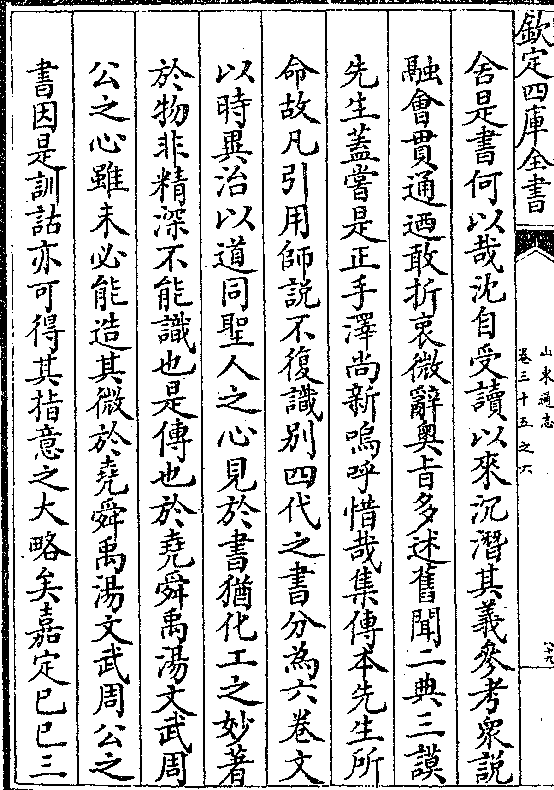 欽定四庫全書
山東通志
卷三十五之六
舍是書何以哉沈自受讀以來沉潛其義參考衆說
融會貫通迺敢折衷微辭奥旨多述舊聞二典三謨
先生蓋嘗是正手澤尚新嗚呼惜哉集傳本先生所
命故凡引用師說不復識别四代之書分為六卷文
以時異治以道同聖人之心見於書猶化工之妙著
於物非精深不能識也是傳也於堯舜禹湯文武周
公之心雖未必能造其微於堯舜禹湯文武周公之
書因是訓詁亦可得其指意之大略矣嘉定己巳三